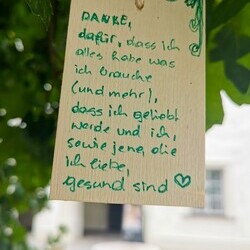 DANKE,
dafür, dass ich
alles habe was
ich brauche
(und mehr),
dass ich geliebt
werde und ich,
sowie jene, die
ich liebe,
gesund sind ♡